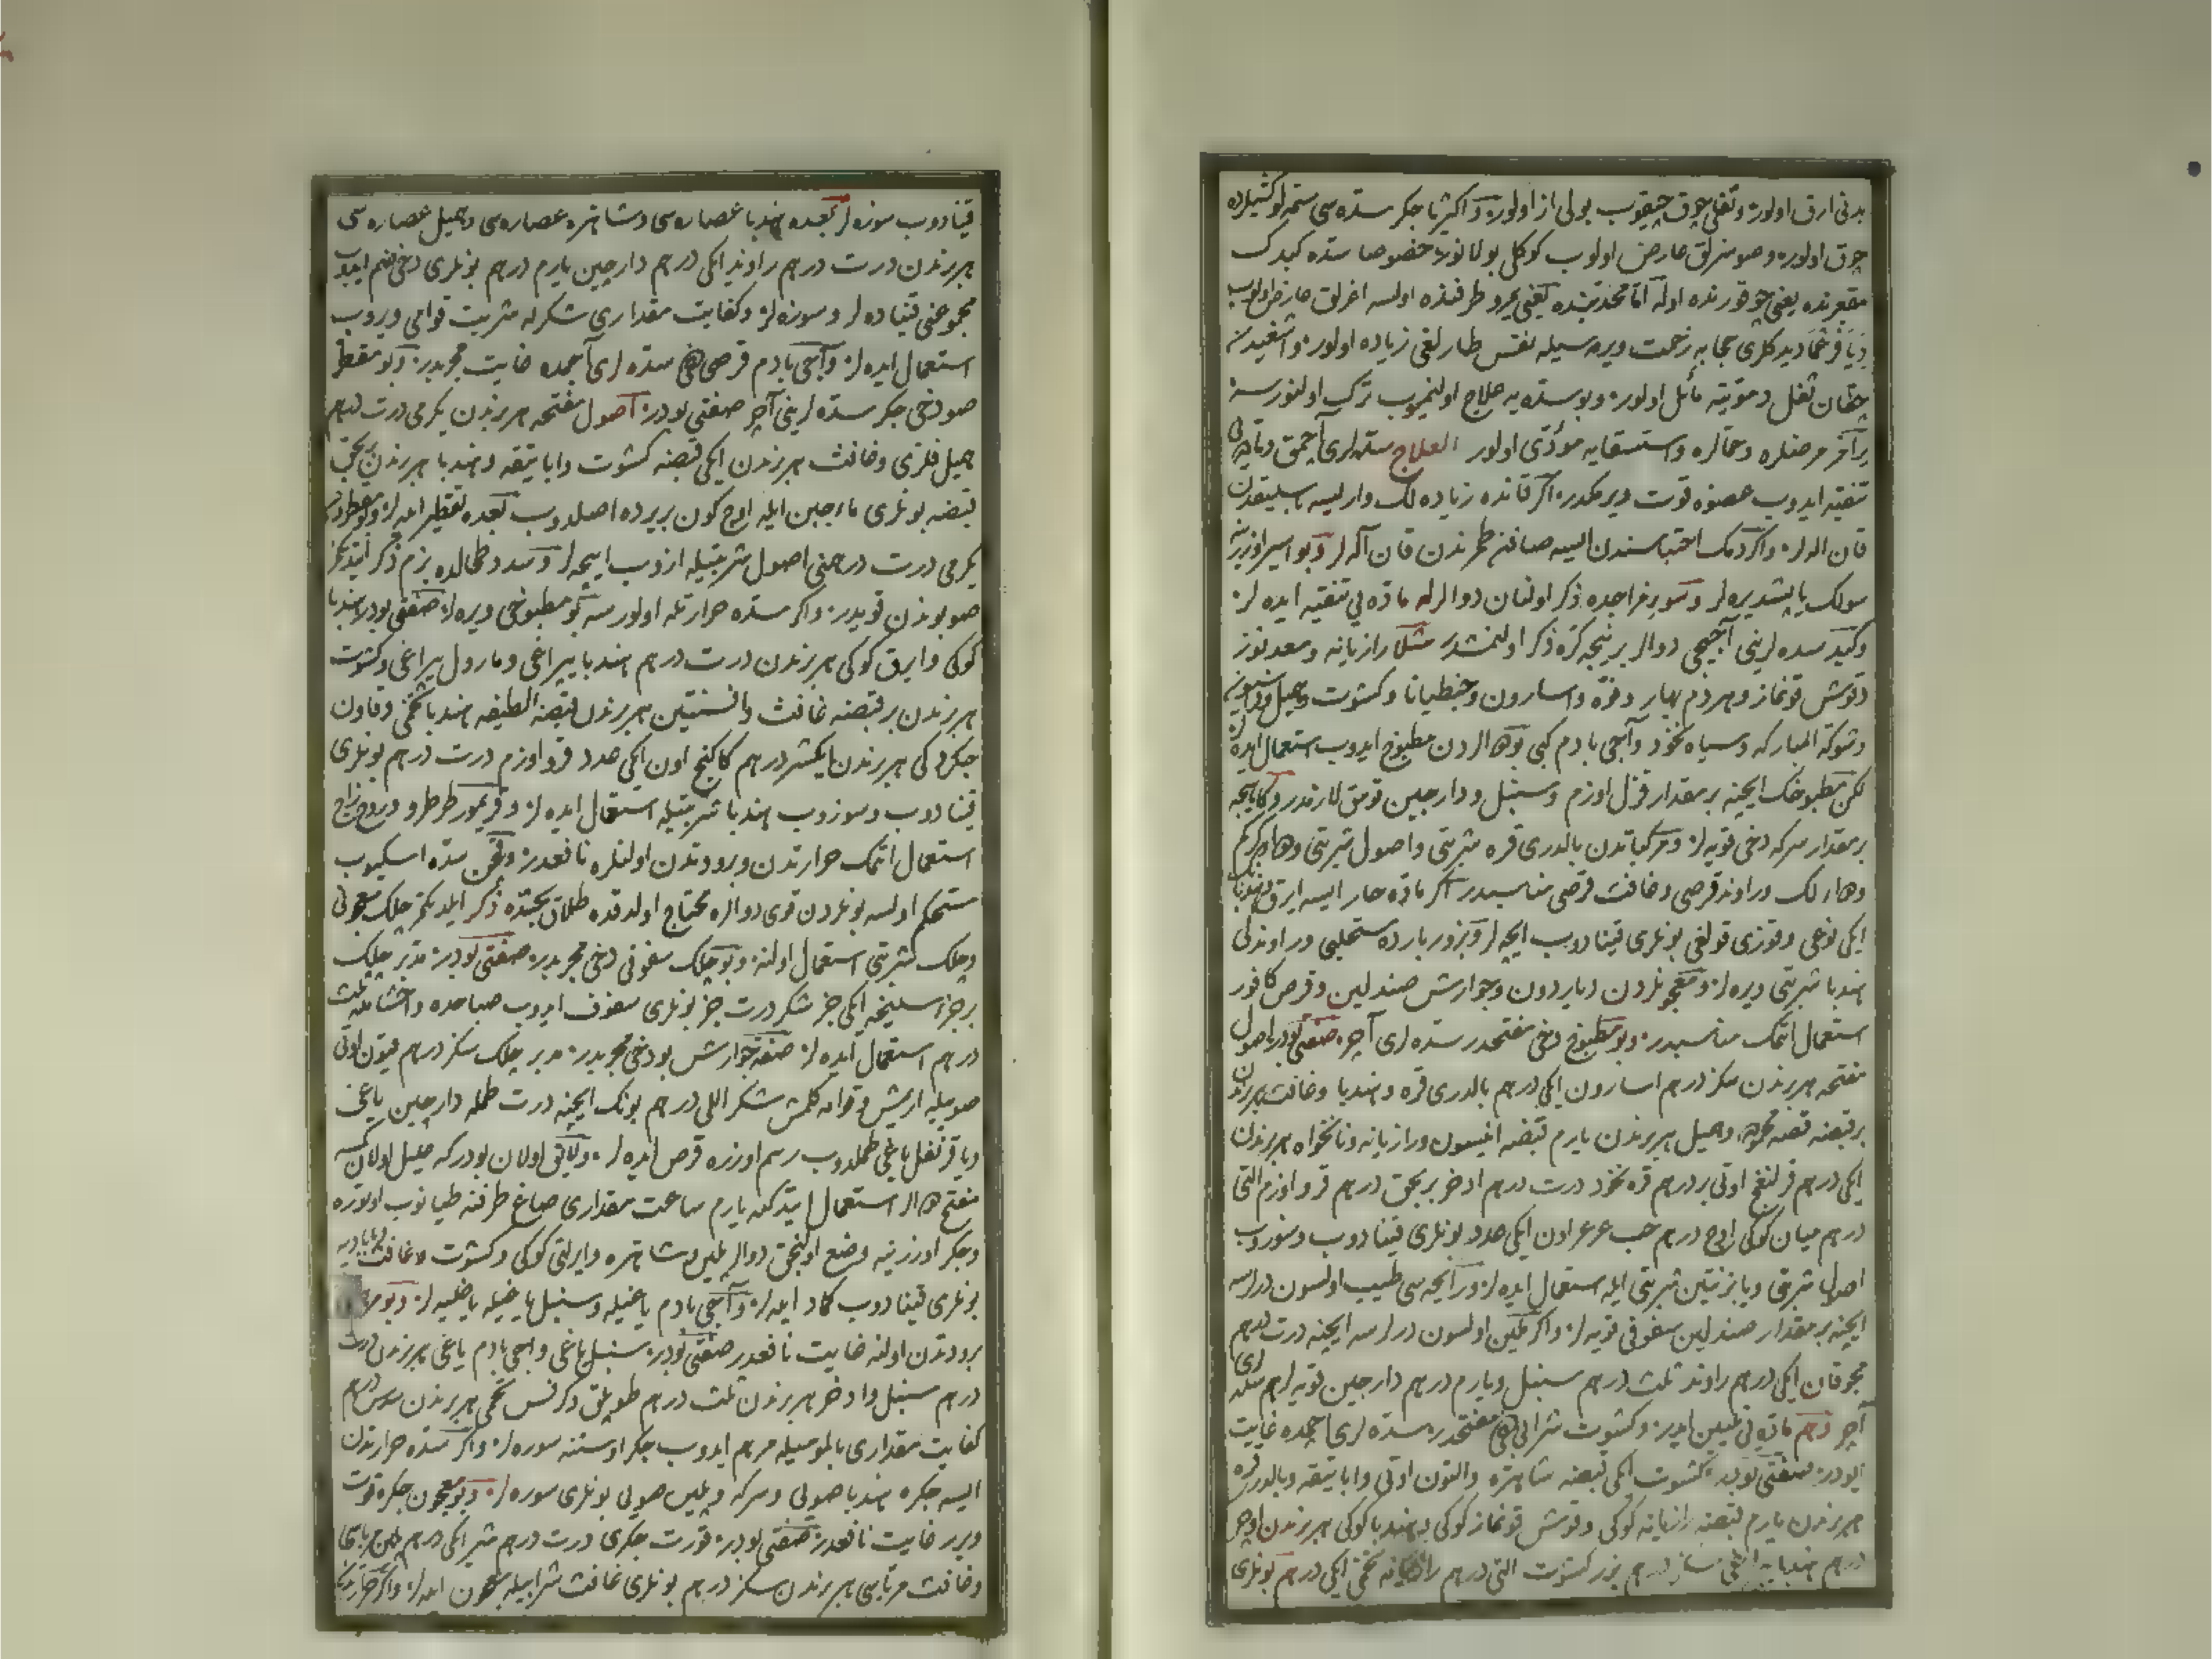 بدنی ارق اولور و ثقلی چوق چیقوب بولی از اولور و اکثریا جکر سده سی ستملو کشیلرده
چوق اولور و صوسزلق عارض اولوب کوکلی بولانور خصوصا سده کبدک
مقعرنده یعنی چوقورنده اوله اما محدبنده یعنی یمرو طرفنده اولسه اغرلق عارض اولوب
دیافرغما دیدکلری حجابه زحمت ویرمسیله نفس طارلغی زیاده اولور و اشغیدن
چقان ثقل دمویته مائل اولور و بو سده یه علاج اولنمیوب ترک اولنورسه
براخر مرضلره و حمالره و استسقایه مؤدی اولور العلاج سده لری آچمق و ماده یی
تنقیه ایدوب عضوه قوت ویرمکدر اکر قانده زیاده لک وار ایسه باسلیقدن
قان اله لر و اکر دمک احتباسندن ایسه صافن طمرندن قان آله لر و بواسیر اوزرینه
سولک یاپشدیره لر و سوء مزاجده ذکر اولنان دوالرله ماده یی تنقیه ایده لر
و کبد سده لرینی آچیجی دوالر برنیجه کره ذکر اولنمشدر مثلا رازیانه و معدنوز
و قوش قونماز و مریم بهار و فوه و اسارون و جنطیانا و کشوت و چمیل
و شوکة المبارکه و سیاه نخود و آجی بادم کبی بو دوالردن مطبوخ ایدوب استعمال ایده لر
لکن مطبوخک ایچنه بر مقدار قزل اوزم و سنبل و دارچین قومق لازمدر
بر مقدار سرکه دخی قویه لر و مرکباتدن بالدری قره شربتی و اصول شربتی
و دواء لک و راوند قرصی و غافت قرصی مناسبدر اکر ماده حار ایسه ایرق
ایکی نوعی و قوزی قولغی بونلری قینادوب ایچه لر و بزور بارده مستحلبی و راوندلی
هندبا شربتی ویره لر و معجونلردن دیابردون و جوارش صندلین و قرص کافور
استعمال اتمک مناسبدر و بو مطبوخ دخی مفتحدر سده لری آچر صفتی بودر اصول
مفتحه هربرندن سکز درهم اسارون ایکی درهم بالدری قره و هندبا و غافت هربرندن
بر قبضه و چمیل هربرندن یارم قبضه انیسون و رازیانه و نانخواه هربرندن
ایکی درهم قرلنغج اوتی بر درهم قره نخود درت درهم اذخر بر بچق درهم قره اوزم التی
درهم میان کوکی اوچ درهم حب عرعر اون ایکی عدد بونلری قینادوب و سوزوب
اصول شربتی و یا بزنتین شربتی ایله استعمال ایده لر و رایحه سی طیب اولسون درلرسه
ایچنه بر مقدار صندلین سفوفی قویه لر و اکر ملین اولسون درلرسه ایچنه درت درهم
ایکی درهم راوند ثلث درهم سنبل و یارم درهم دارچین قویه لر هم سده لری
آچر و هم ماده یی تلیین ایدر و کشوت شرابی دخی مفتحدر سده لری اچمده غایت
ایودر صفتی بودر کشوت ایکی قبضه شاهتره و التون اوتی و اباتیقه و بالدری قره
هربرندن یارم قبضه رازیانه کوکی و قوش قونماز کوکی و هندبا کوکی هربرندن اوچر
درهم هندبا درهم بزر کشوت التی درهم رازیانه تخمی ایکی درهم بونلری
قینادوب سوزه لر بعده هندبا عصاره سی و شاهتره عصاره سی و چمیل عصاره سی
هربرندن درت درهم راوند ایکی درهم دارچین یارم درهم بونلری دخی ضم ایدوب
مجموعنی قیناده لر و سوزه لر و کفایت مقداری شکرله شربت قوامی ویروب
استعمال ایده لر و آجی بادم قرصی دخی سده لری آچمده غایت مجربدر و بو مقطر
صو دخی جکر سده لرینی آچر صفتی بودر اصول مفتحه هربرندن یکرمی درت درهم
چمیل فلزی و غافت هربرندن ایکی قبضه کشوت و اباتیقه و هندبا هربرندن بر بچق
قبضه بونلری ماء جبن ایله اوچ کون بر یرده اصلدوب بعده تقطیر ایده لر و بو مقطردن
یکرمی درت درهمی اصول شربتیله ازوب ایچه لر و سدد طحالده بزم ذکر ایتدکمز
صو بوندن قویدر و اکر سده حرارتله اولورسه بو مطبوخی ویره لر صفتی بودر هندبا
کوکی و ایرق کوکی هربرندن درت درهم هندبا یپراغی و مارول یپراغی و کشوت
هربرندن بر قبضه غافث و افسنتین هربرندن قبضه الطیفه هندبا تخمی و قاون
چکردکی هربرندن ایکیشر درهم کاکنج اون ایکی عدد قره اوزم درت درهم بونلری
قینادوب و سوزوب هندبا شربتیله استعمال ایده لر و قریمور طرطرو و روح زاج
استعمال اتمک حرارتدن و برودتدن اولنلره نافعدر و قچن سده اسکیوب
مستحکم اولسه بونلردن قوی دوالره محتاج اولدقده طلاق بحثنده ذکر ایلدیکمز چلک معجونی
و چلک شربتی استعمال اولنه و بو چلک سفوفی دخی مجربدر صفتی بودر مدبر چلک
بر جزء سلیخه ایکی جزء شکر درت جزء بونلری سفوف ایدوب صباحده و اخشامده ثلث
درهم استعمال ایده لر صفة جوارش بو دخی مجربدر مدبر چلک سکز درهم قیون اوتی
صوییله ازیش و قوامه کلمش شکر اللی درهم بونک ایچنه درت طمله دارچین یاغی
و یا قرنفل یاغی طملدوب رسم اوزره قرص ایده لر و لایق اولان بودرکه علیل اولان کمسه
مفتح دوالر استعمال ایتدکده یارم ساعت مقداری صاغ طرفنه طیانوب اوتوره
و جکر اوزرینه وضع اولنجق دوالر ملین و شاهتره و ایرلتی کوکی و کشوت و غافث
بونلری قینادوب کماد ایده لر و آجی بادم یاغیله و سنبل یاغیله یاغلیه لر
برودتدن اولنه غایت نافعدر صفتی بودر سنبل یاغی و اجی بادم یاغی هربرندن درت
درهم سنبل و اذخر هربرندن ثلث درهم طوپلق و کرفس تخمی هربرندن سدس درهم
کفایت مقداری بالمومیله مرهم ایدوب جکر اوستنه سوره لر و اکر سده حرارتدن
ایسه جکره هندبا صویی و سرکه و ملین صویی بونلری سوره لر و بو معجون جکره قوت
ویرر غایت نافعدر صفتی بودر قورت جکری درت درهم شیر ایکی درهم
و غافث مرباسی هربرندن سکز درهم بونلری غافث شرابیله معجون ایده لر